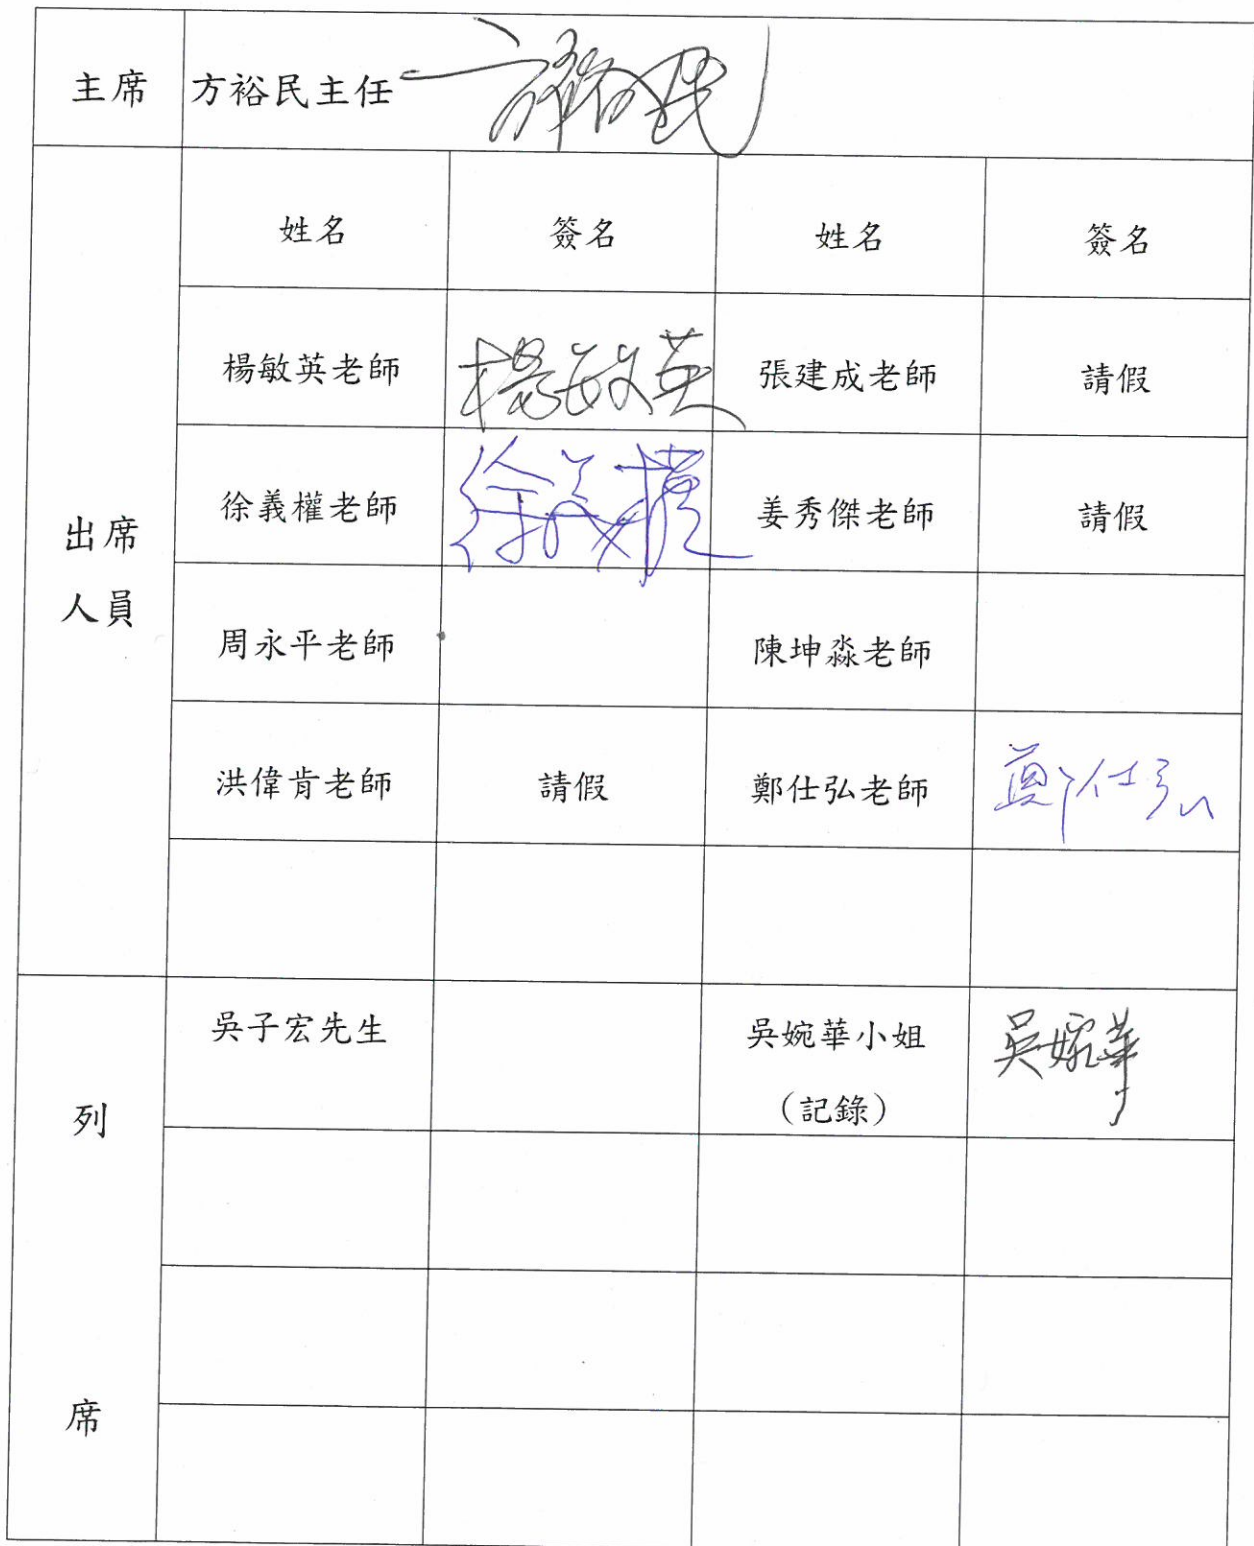 主席 方裕民主任 方裕民
出席
人員
姓名 簽名 姓名 簽名
楊敏英老師 楊敏英 張建成老師 請假
徐義權老師 徐義權 姜秀傑老師 請假
周永平老師 陳坤淼老師
洪偉肯老師 請假 鄭仕弘老師 鄭仕弘
列
席
吳子宏先生 吳婉華小姐 吳婉華
（記錄）